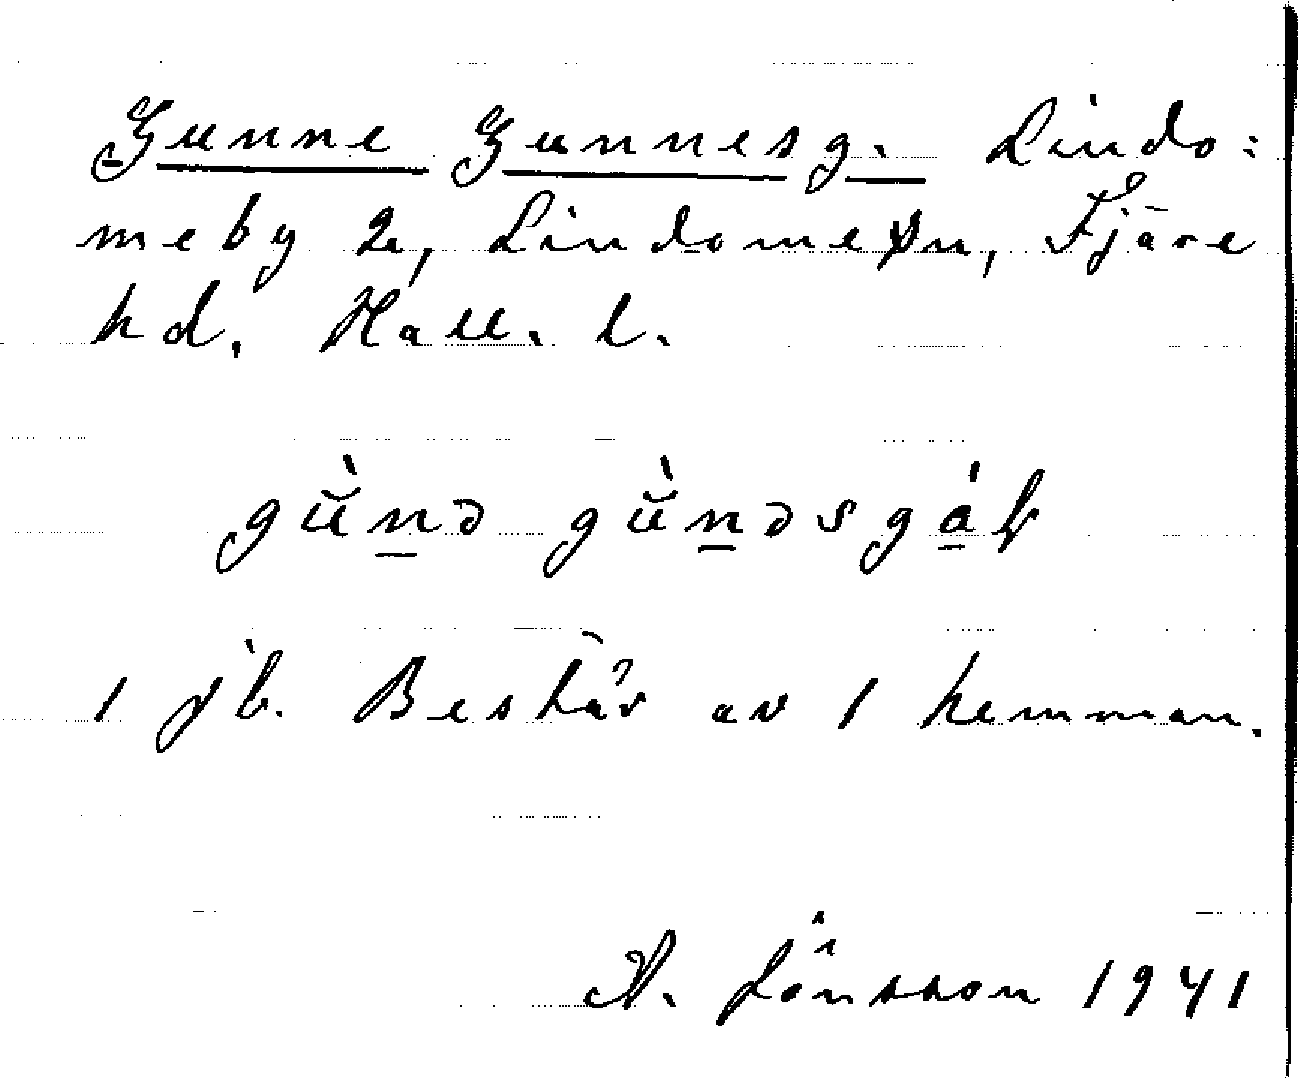 Gunne Gunnesg. Lindo=
meby 2, Lindome sn, Fjäre
hd. Hall. l.
gùnə gùnəsgáʀ
1 jb. Består av 1 hemman.
A. Jönsson 1941